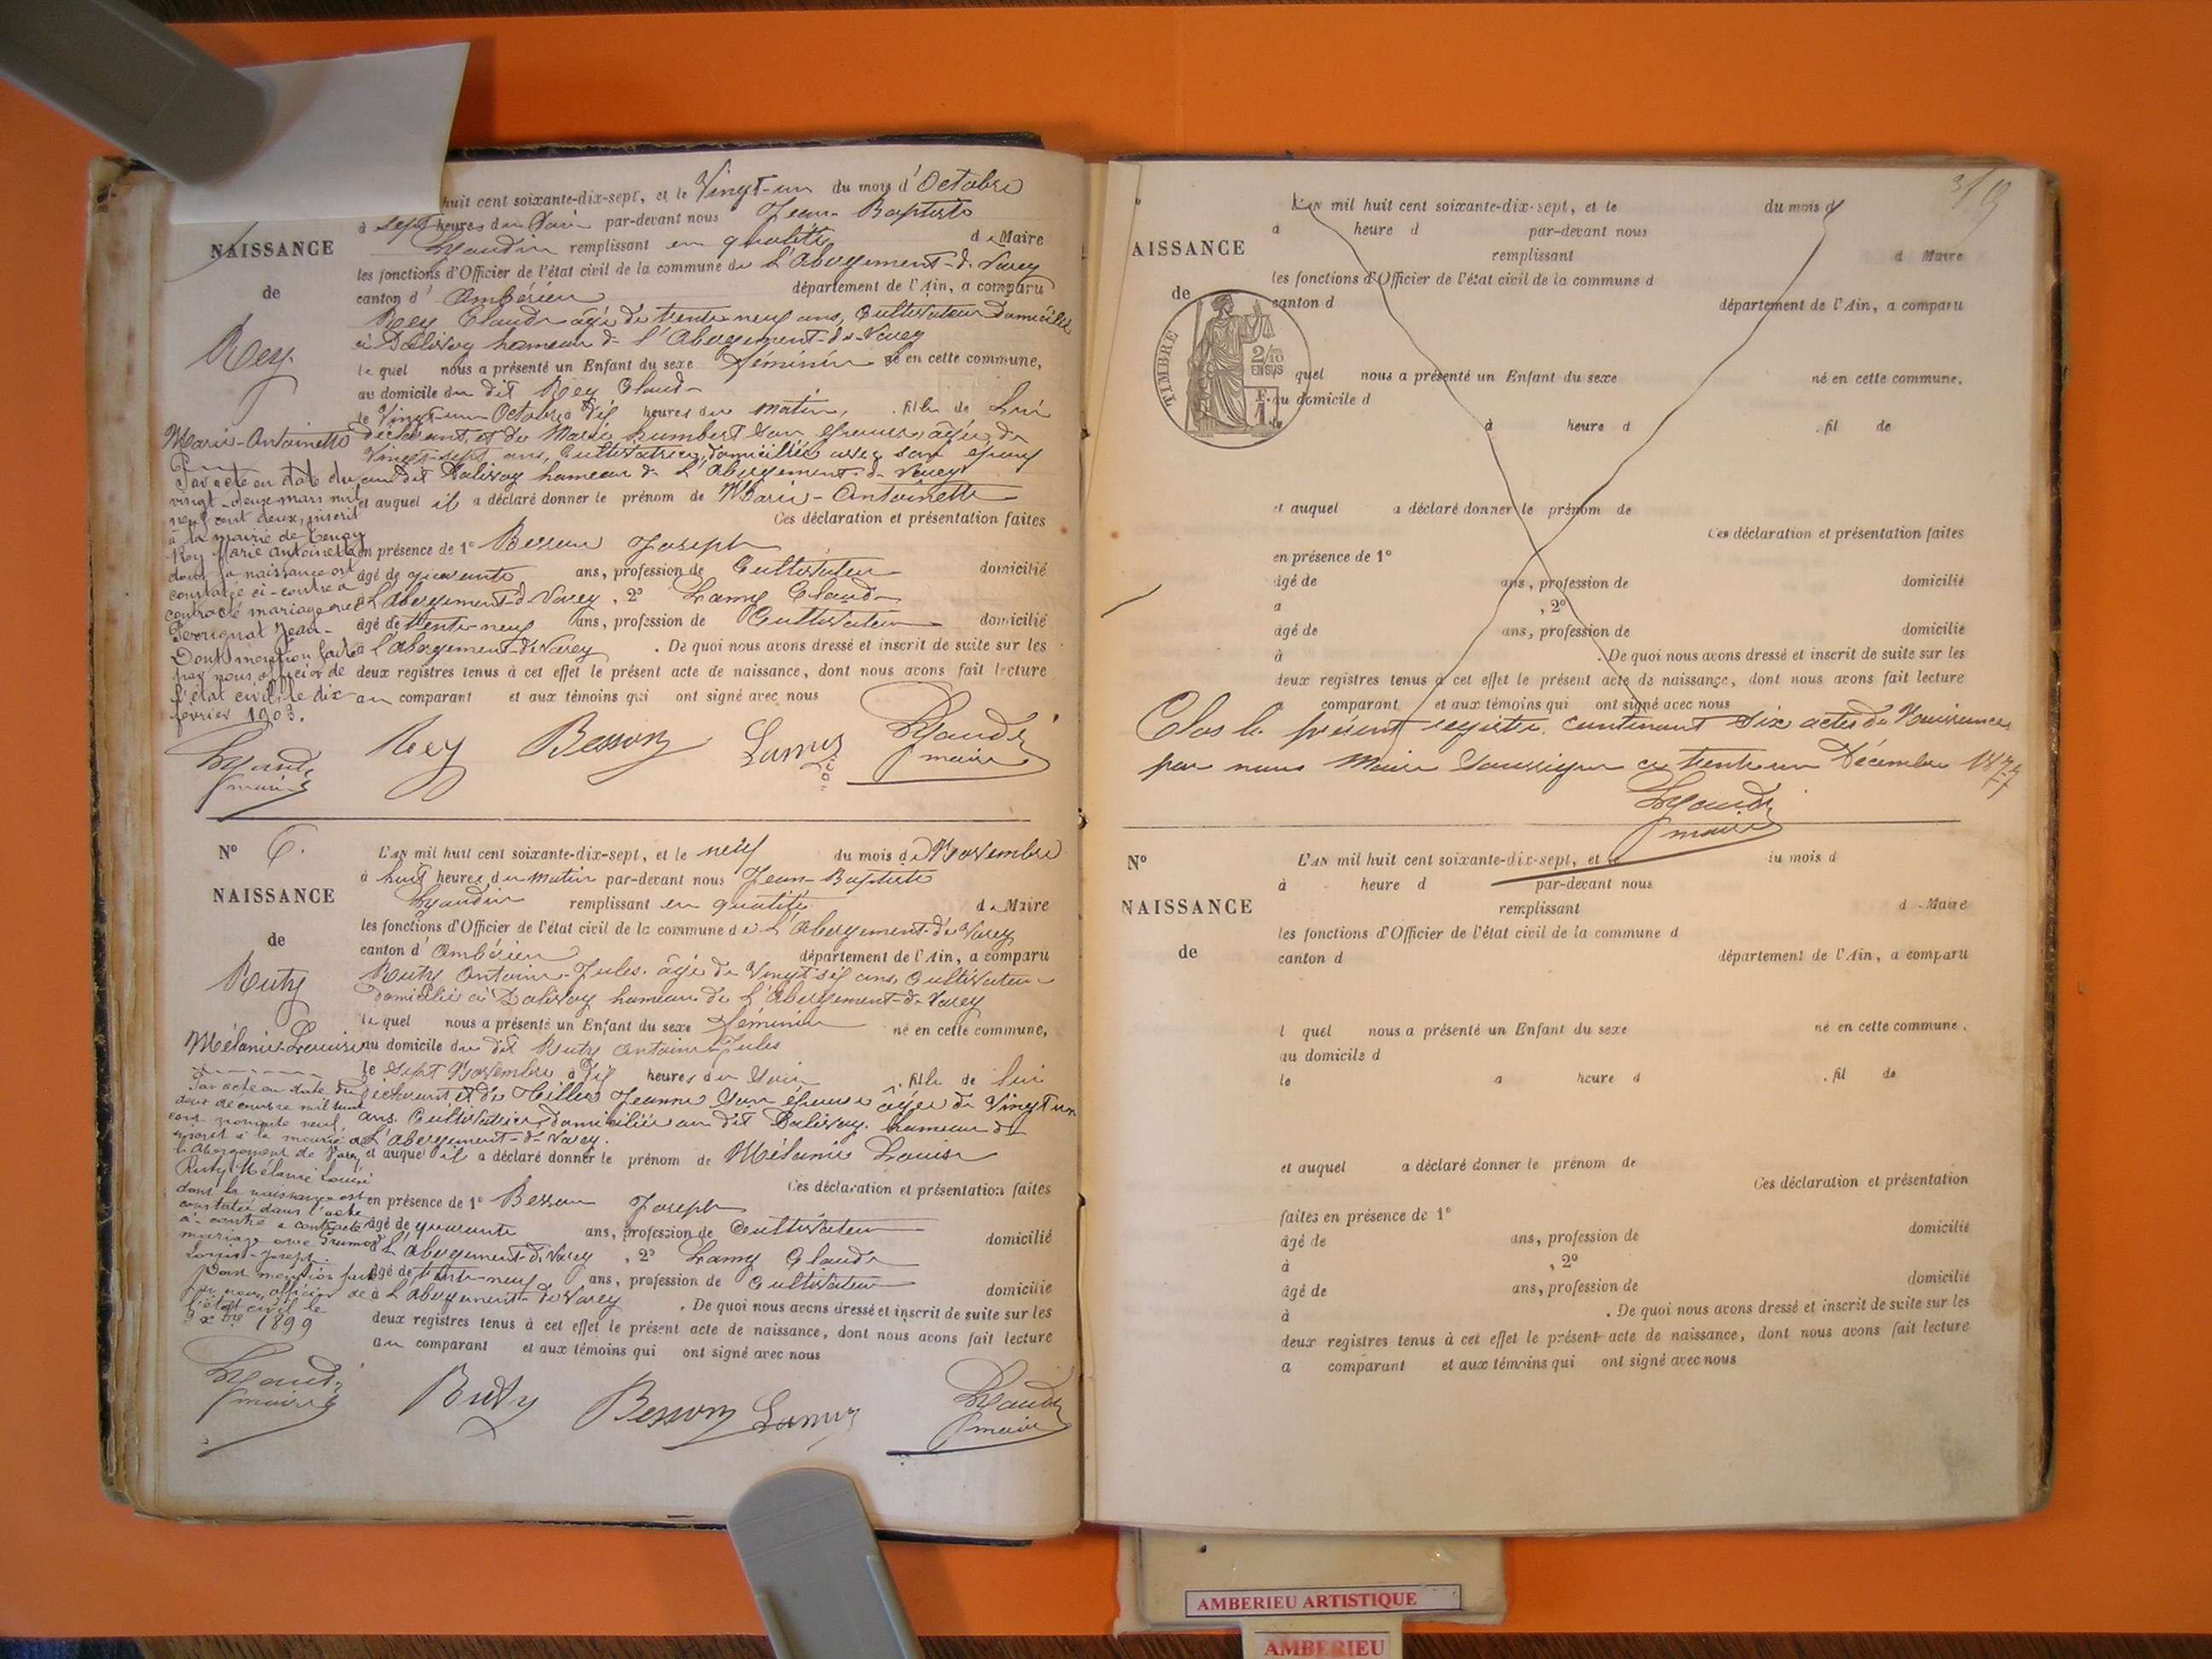 huit cent soixante-dix-sept, et le Vingt-un du mois d'Octobre
à sept heures du Soir par-devant nous Jean-Baptiste
remplissant en qualité de Maire
NAISSANCE
les fonctions d'Officier de l'état civil de la commune de L'Abergement-de-Varey
de
canton d'Ambérieu département de l'Ain, a comparu
Rey Claude âgé de trente neuf ans, Cultivateur domicilié
à Dalivoy hameau de l'Abergement-de-Varey
Rey
lequel nous a présenté un Enfant du sexe féminin né en cette commune,
au domicile du dit Rey Claude
le Vingt-un Octobre à dix heures du matin, fille de Lui
Marie-Antoinette
déclarant et de Marie Humbert son épouse âgée de
Vingt-sept ans, Cultivatrice, domiciliée avec son époux
au dit Dalivoy hameau de L'Abergement-de-Varey
et auquel il a déclaré donner le prénom de Marie-Antoinette
Ces déclaration et présentation faites
en présence de 1° Besson Joseph
âgé de quarante ans, profession de Cultivateur domicilié
à L'Abergement-de-Varey, 2° Lamy Claude
âgé de trente-neuf ans, profession de Cultivateur domicilié
à L'Abergement-de-Varey. De quoi nous avons dressé et inscrit de suite sur les
deux registres tenus à cet effet le présent acte de naissance, dont nous avons fait lecture
au comparant et aux témoins qui ont signé avec nous
Par acte en date du
vingt-deux mars mil
neuf cent deux, inscrit
à la mairie de Tenay
Rey Marie Antoinette
dont la naissance est
constatée ci-contre a
contracté mariage avec
Perrignat Jean.
Dont mention faite
par nous officier de
l'état civil, le dix
février 1903.
Rey Besson Lamy
maire
maire
N° 6.
L'AN mil huit cent soixante-dix-sept, et le neuf du mois de Novembre
à huit heures du matin par-devant nous Jean-Baptiste
NAISSANCE
remplissant en qualité de Maire
les fonctions d'Officier de l'état civil de la commune de L'Abergement-de-Varey
de
canton d'Ambérieu département de l'Ain, a comparu
Ruty
Ruty Antoine-Jules âgé de Vingt six ans, Cultivateur
domicilié à Dalivoy hameau de L'Abergement-de-Varey
lequel nous a présenté un Enfant du sexe féminin né en cette commune,
Mélanie-Louise
au domicile du dit Ruty Antoine-Jules
le Sept Novembre à dix heures du Soir fille de lui
déclarant et de Jeanne son épouse âgée de Vingt un
ans, Cultivatrice, domiciliée au dit Dalivoy hameau de
L'Abergement-de-Varey.
et auquel il a déclaré donner le prénom de Mélanie Louise
Ces déclaration et présentation faites
en présence de 1° Besson Joseph
âgé de quarante ans, profession de Cultivateur domicilié
à L'Abergement-de-Varey, 2° Lamy Claude
âgé de trente-neuf ans, profession de Cultivateur domicilié
à L'Abergement-de-Varey. De quoi nous avons dressé et inscrit de suite sur les
deux registres tenus à cet effet le présent acte de naissance, dont nous avons fait lecture
au comparant et aux témoins qui ont signé avec nous
Par acte en date du
deux décembre mil huit
cent nonante neuf,
inscrit à la mairie de
l'Abergement de Varey
Ruty Mélanie Louise
dont la naissance est
constatée dans l'acte
ci-contre a contracté
mariage avec
Louis-Joseph.
Dont mention faite
par nous, officier de
l'état civil le
1899
maire
Ruty Besson Lamy
maire
L'AN mil huit cent soixante-dix-sept, et le du mois d
à heure d par-devant nous
AISSANCE
remplissant d Maire
les fonctions d'Officier de l'état civil de la commune d
de
canton d département de l'Ain, a comparu
TIMBRE
2/10
EN SUS
F.
1.
quel nous a présenté un Enfant du sexe né en cette commune,
au domicile d
à heure d . fil de
et auquel a déclaré donner le prénom de
Ces déclaration et présentation faites
en présence de 1°
âgé de ans, profession de domicilié
à , 2°
âgé de ans, profession de domicilié
à . De quoi nous avons dressé et inscrit de suite sur les
deux registres tenus à cet effet le présent acte de naissance, dont nous avons fait lecture
comparant et aux témoins qui ont signé avec nous
Clos le présent registre contenant Six actes de Naissances
par nous Maire Soussigné ce trente un Décembre 1877
maire
N°
L'AN mil huit cent soixante-dix-sept, et le du mois d
à heure d par-devant nous
NAISSANCE
remplissant d Maire
les fonctions d'Officier de l'état civil de la commune d
de
canton d département de l'Ain, a comparu
l quel nous a présenté un Enfant du sexe né en cette commune.
au domicile d
le à heure d . fil de
et auquel a déclaré donner le prénom de
Ces déclaration et présentation
faites en présence de 1°
âgé de ans, profession de domicilié
à , 2°
âgé de ans, profession de domicilié
à . De quoi nous avons dressé et inscrit de suite sur les
deux registres tenus à cet effet le présent acte de naissance, dont nous avons fait lecture
a comparant et aux témoins qui ont signé avec nous
AMBERIEU ARTISTIQUE
AMBERIEU